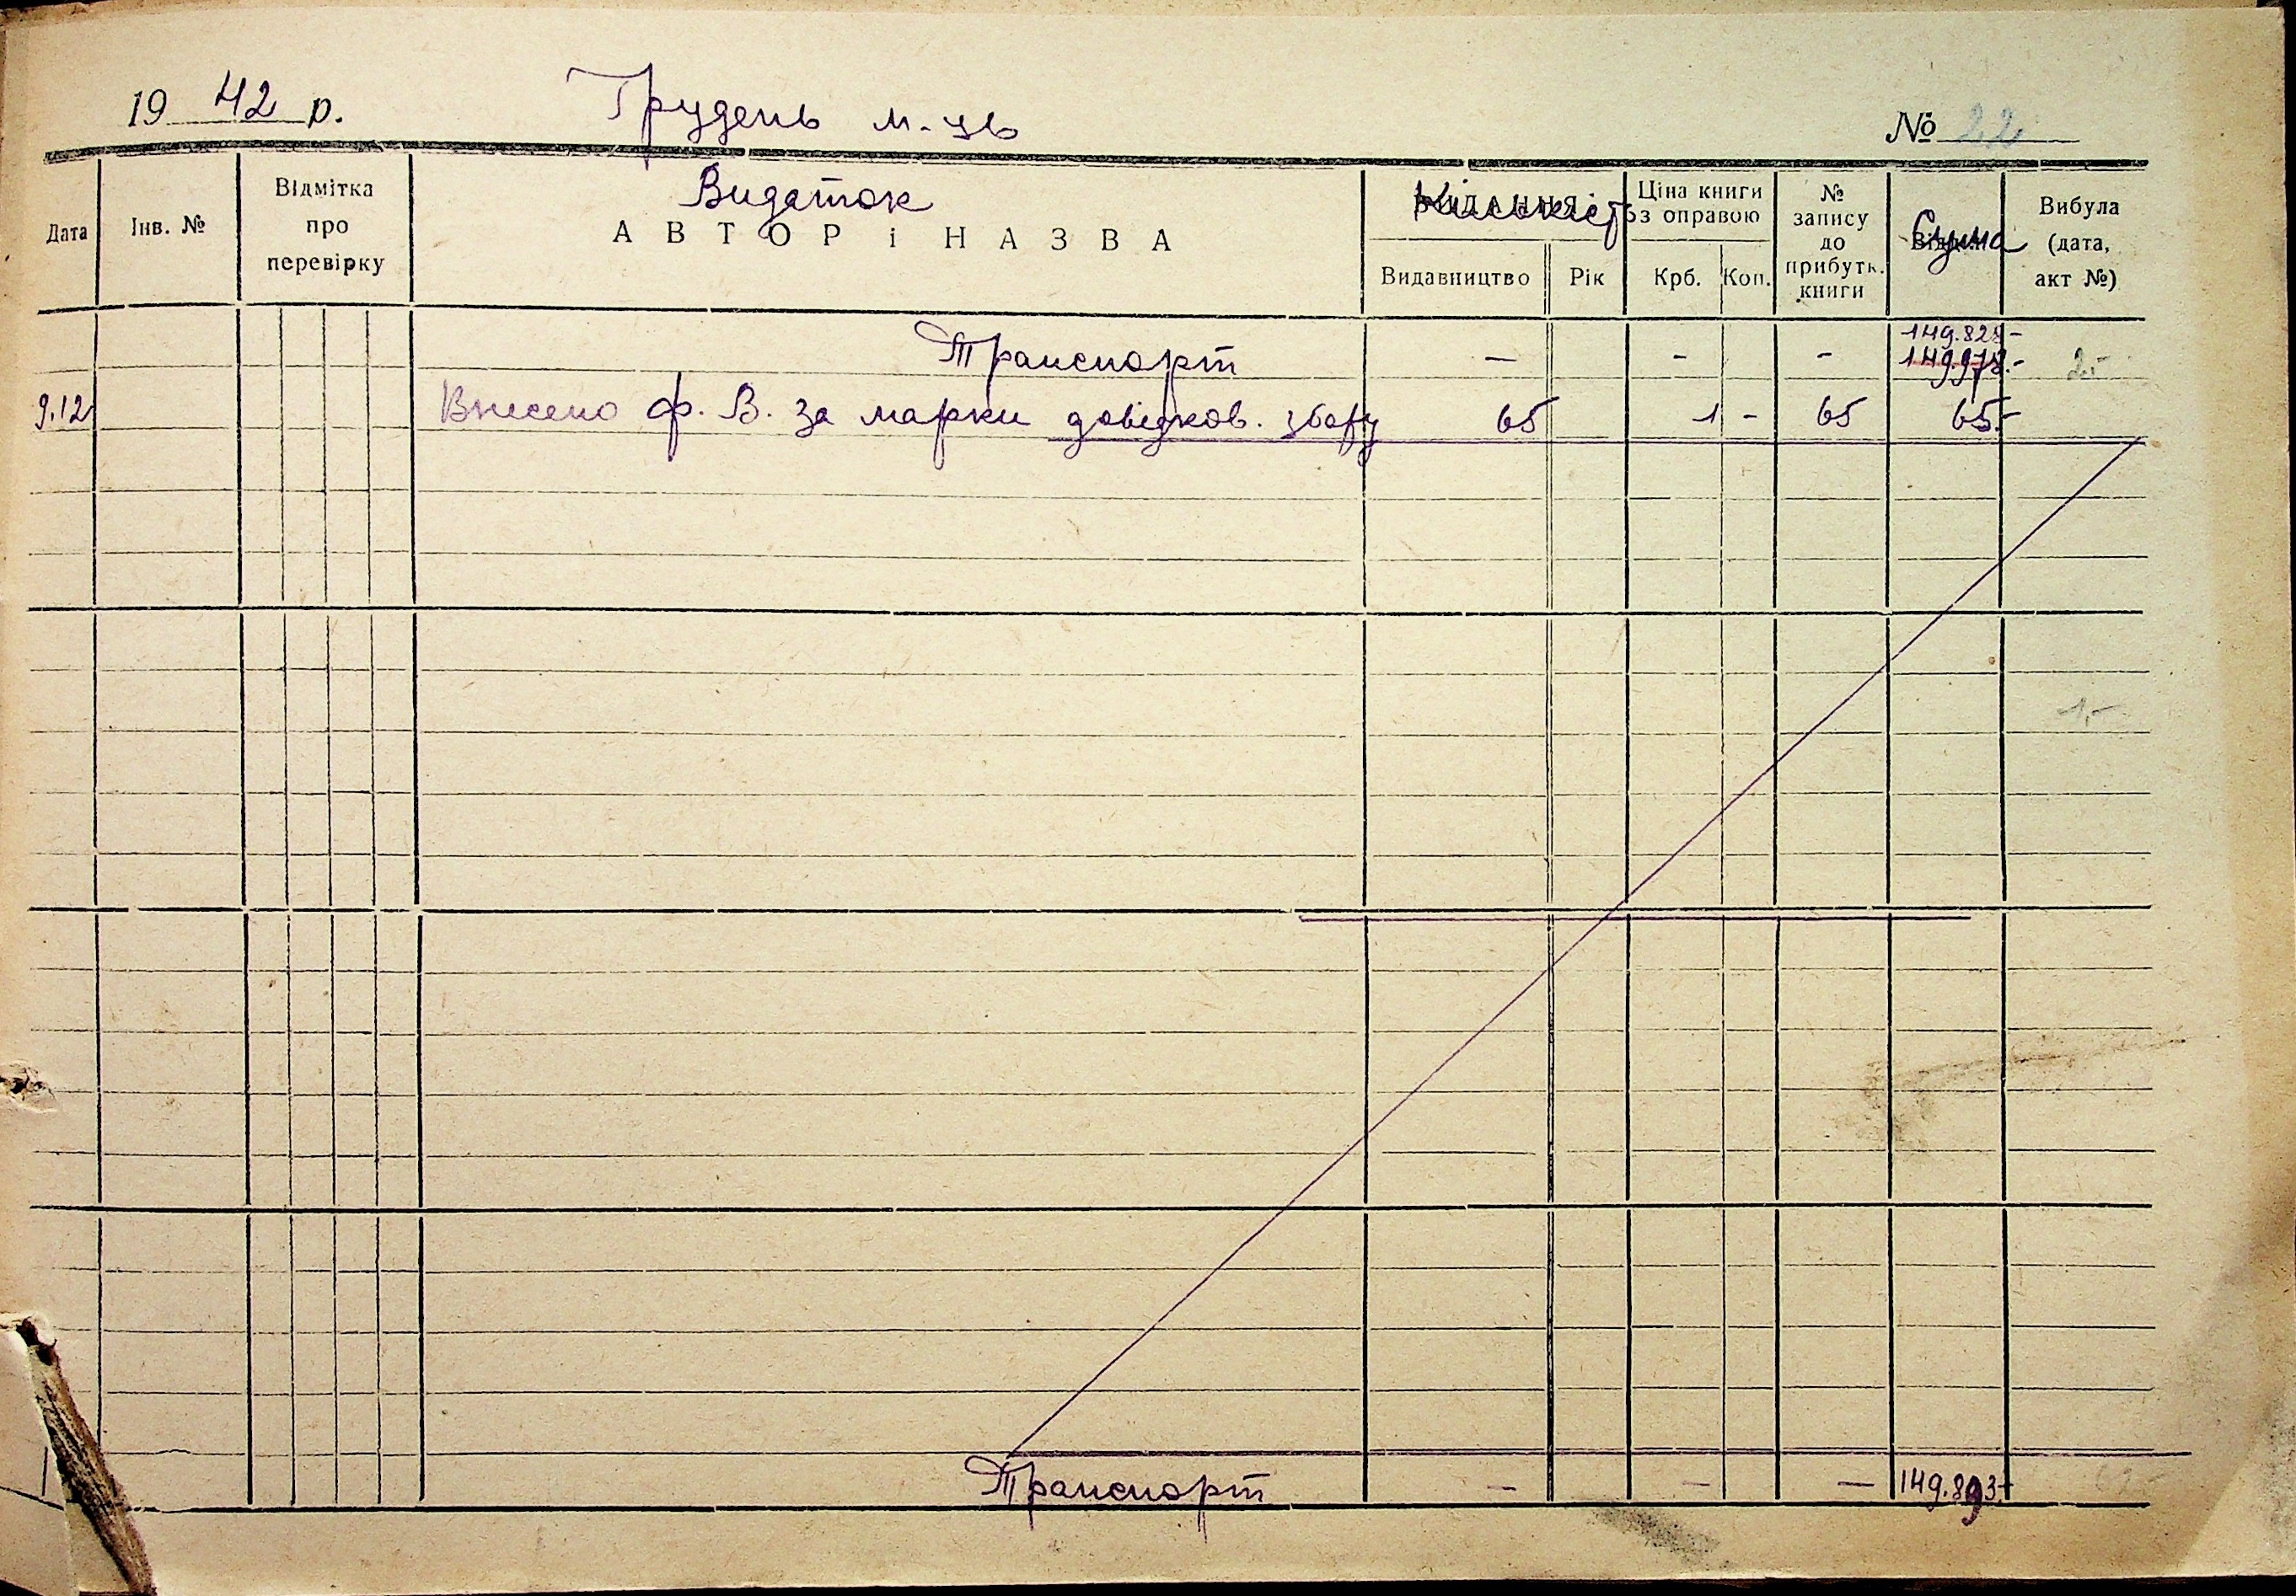 19 42 р. Грудень м-ць № 22
Дата
Інв. №
Відмітка
про
перевірку
Видаток
АВТОР і НАЗВА
Кількість
Видавництво
Рік
Ціна книги
з оправою
Крб.
Коп.
№
запису
до
прибутк.
книги
Сума
Вибула
(дата,
акт №)
149.828-
Транспорт — - - 149.978.- 2.-
9.12 Внесено ф. В. за марки довідков. збору 65 1 - 65 65.-
1,-
Транспорт — — — 149.893-